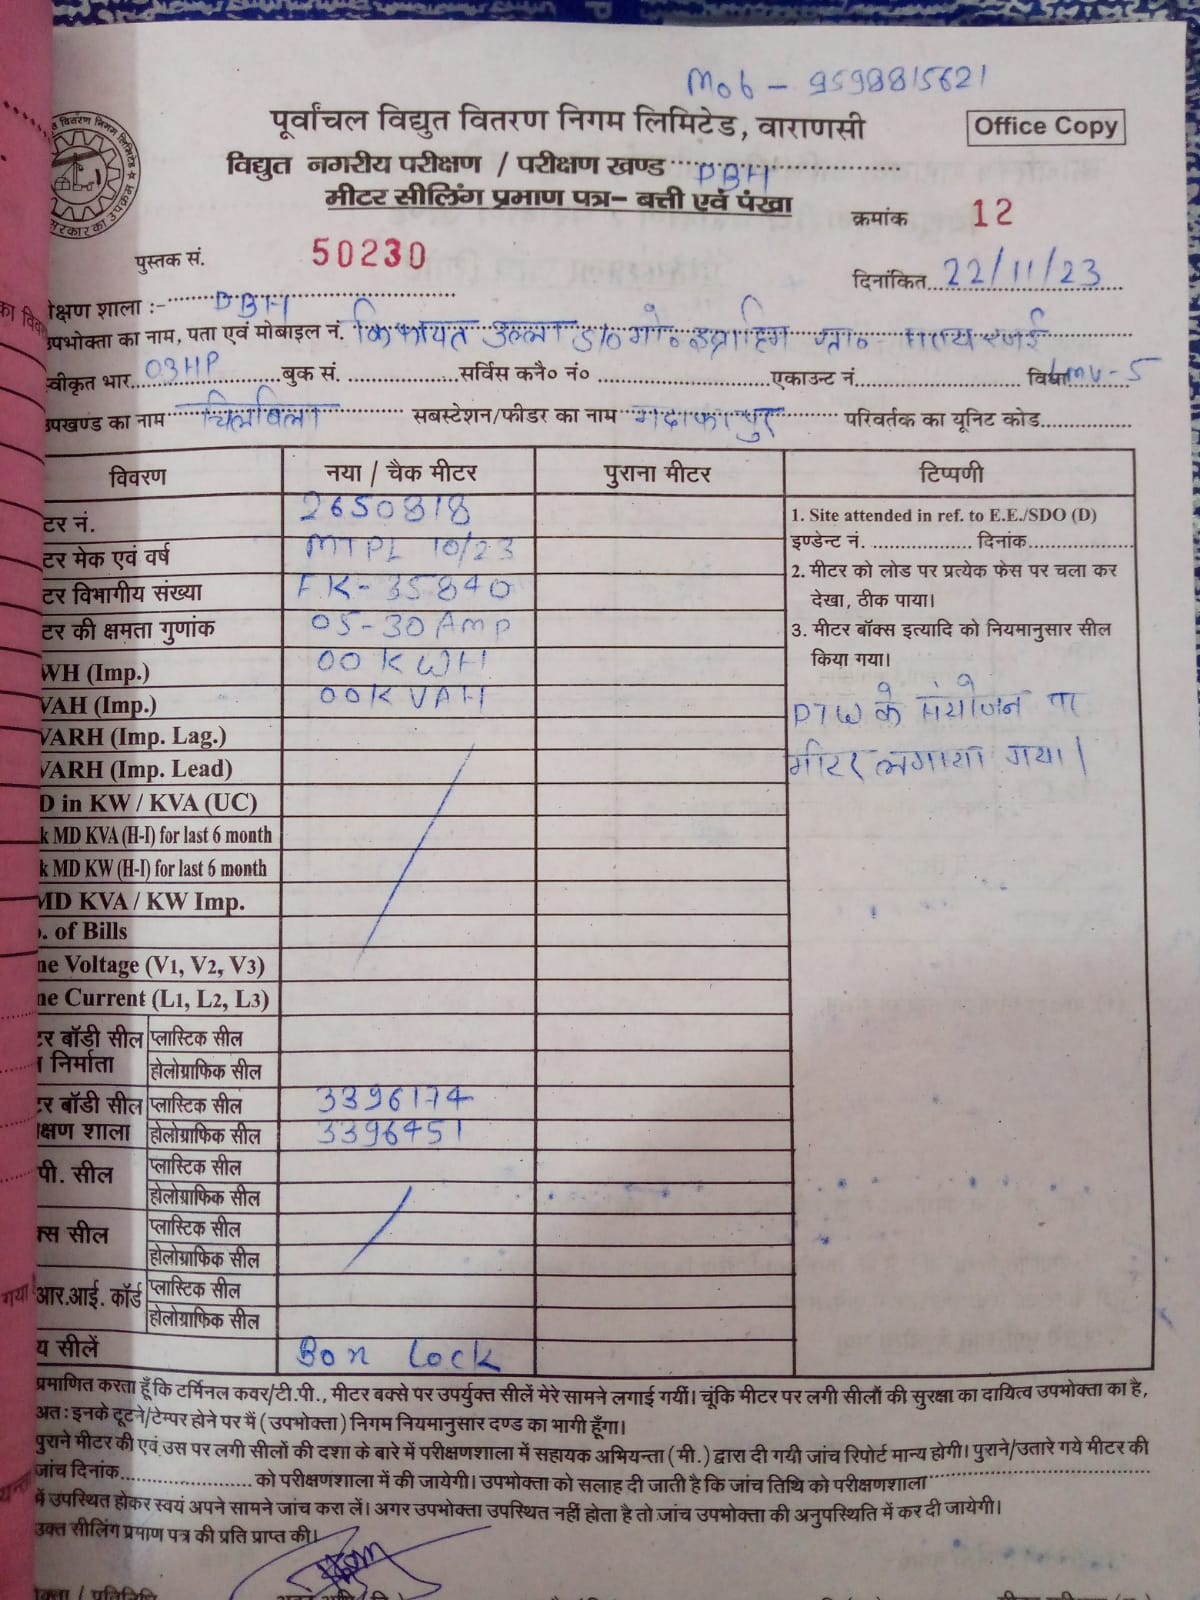 Mob - 9598815621
पूर्वांचल विद्युत वितरण निगम लिमिटेड, वाराणसी
Office Copy
विद्युत नगरीय परीक्षण / परीक्षण खण्ड PBH
मीटर सीलिंग प्रमाण पत्र– बत्ती एवं पंखा
क्रमांक 12
पुस्तक सं. 50230
दिनांकित 22/11/23
क्षण शाला :- PBH
उपभोक्ता का नाम, पता एवं मोबाइल नं. किफायत उल्ला S/o मो० इब्राहिम
स्वीकृत भार 03HP बुक सं. सर्विस कनै० नं० एकाउन्ट नं. विधा Lmv-5
उपखण्ड का नाम चिलबिला सबस्टेशन/फीडर का नाम परिवर्तक का यूनिट कोड
विवरण नया / चैक मीटर पुराना मीटर टिप्पणी
टर नं. 2650818
टर मेक एवं वर्ष MTPL 10/23
टर विभागीय संख्या FK-35840
टर की क्षमता गुणांक 05-30 Amp
WH (Imp.) 00 KWH
VAH (Imp.) 00KVAH
VARH (Imp. Lag.)
VARH (Imp. Lead)
D in KW / KVA (UC)
k MD KVA (H-I) for last 6 month
k MD KW (H-I) for last 6 month
MD KVA / KW Imp.
. of Bills
ne Voltage (V1, V2, V3)
ne Current (L1, L2, L3)
टर बॉडी सील प्लास्टिक सील
निर्माता होलोग्राफिक सील
टर बॉडी सील प्लास्टिक सील 3396174
क्षण शाला होलोग्राफिक सील 3396451
पी. सील प्लास्टिक सील
होलोग्राफिक सील
क्स सील प्लास्टिक सील
होलोग्राफिक सील
आर.आई. कॉर्ड प्लास्टिक सील
होलोग्राफिक सील
य सीलें Box Lock
1. Site attended in ref. to E.E./SDO (D)
इण्डेन्ट नं. दिनांक
2. मीटर को लोड पर प्रत्येक फेस पर चला कर
देखा, ठीक पाया।
3. मीटर बॉक्स इत्यादि को नियमानुसार सील
किया गया।
PTW के संयोजन पर
मीटर लगाया गया।
प्रमाणित करता हूँ कि टर्मिनल कवर/टी.पी., मीटर बक्से पर उपर्युक्त सीलें मेरे सामने लगाई गयीं। चूंकि मीटर पर लगी सीलौं की सुरक्षा का दायित्व उपभोक्ता का है,
अतः इनके टूटने/टेम्पर होने पर मैं (उपभोक्ता) निगम नियमानुसार दण्ड का भागी हूँगा।
पुराने मीटर की एवं उस पर लगी सीलों की दशा के बारे में परीक्षणशाला में सहायक अभियन्ता (मी.) द्वारा दी गयी जांच रिपोर्ट मान्य होगी। पुराने/उतारे गये मीटर की
जांच दिनांक को परीक्षणशाला में की जायेगी। उपभोक्ता को सलाह दी जाती है कि जांच तिथि को परीक्षणशाला
में उपस्थित होकर स्वयं अपने सामने जांच करा लें। अगर उपभोक्ता उपस्थित नहीं होता है तो जांच उपभोक्ता की अनुपस्थिति में कर दी जायेगी।
उक्त सीलिंग प्रमाण पत्र की प्रति प्राप्त की।